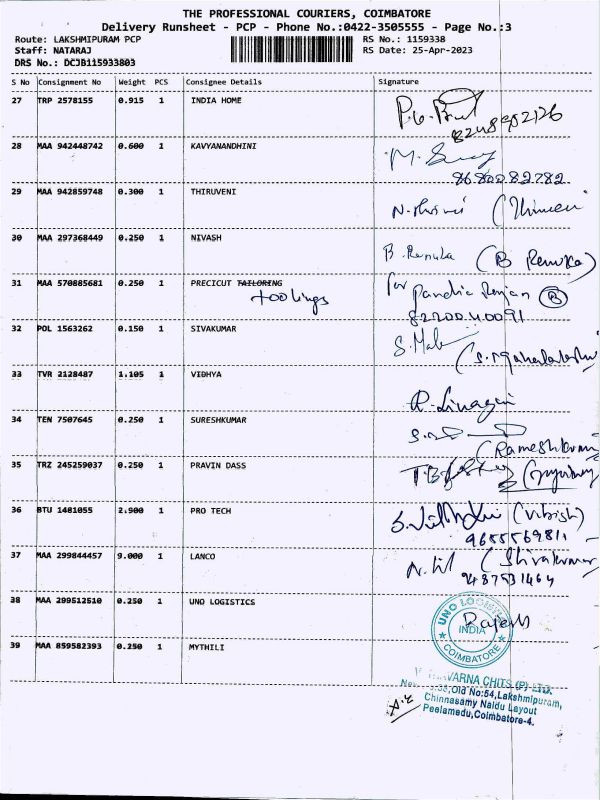 THE PROFESSIONAL COURIERS, COIMBATORE
Delivery Runsheet - PCP - Phone No.:0422-3505555 - Page No.:3
Route: LAKSHMIPURAM PCP
RS No.: 1159338
Staff: NATARAJ
RS Date: 25-Apr-2023
DRS No.: DCJB115933803
S No Consignment No Weight PCS Consignee Details Signature
27 TRP 2578155 0.915 1 INDIA HOME
28 MAA 942448742 0.600 1 KAVYANANDHINI
8680082782
29 MAA 942859748 0.300 1 THIRUVENI
30 MAA 297368449 0.250 1 NIVASH
B. Renuka (B Renuka)
31 MAA 570885681 0.250 1 PRECICUT TAILORING
toolings
for
8220040091
32 POL 1563262 0.150 1 SIVAKUMAR
33 TVR 2128487 1.105 1 VIDHYA
34 TEN 7507645 0.250 1 SURESHKUMAR
35 TRZ 245259037 0.250 1 PRAVIN DASS
36 BTU 1481055 2.900 1 PRO TECH
9655569811
37 MAA 299844457 9.000 1 LANCO
38 MAA 299512510 0.250 1 UNO LOGISTICS
Rajesh
UNO LOGIST
INDIA
COIMBATORE
39 MAA 859582393 0.250 1 MYTHILI
VARNA CHITS (P) LTD.
Old No:54, Lakshmipuram,
Chinnasamy Naidu Layout
Peelamedu, Coimbatore-4.